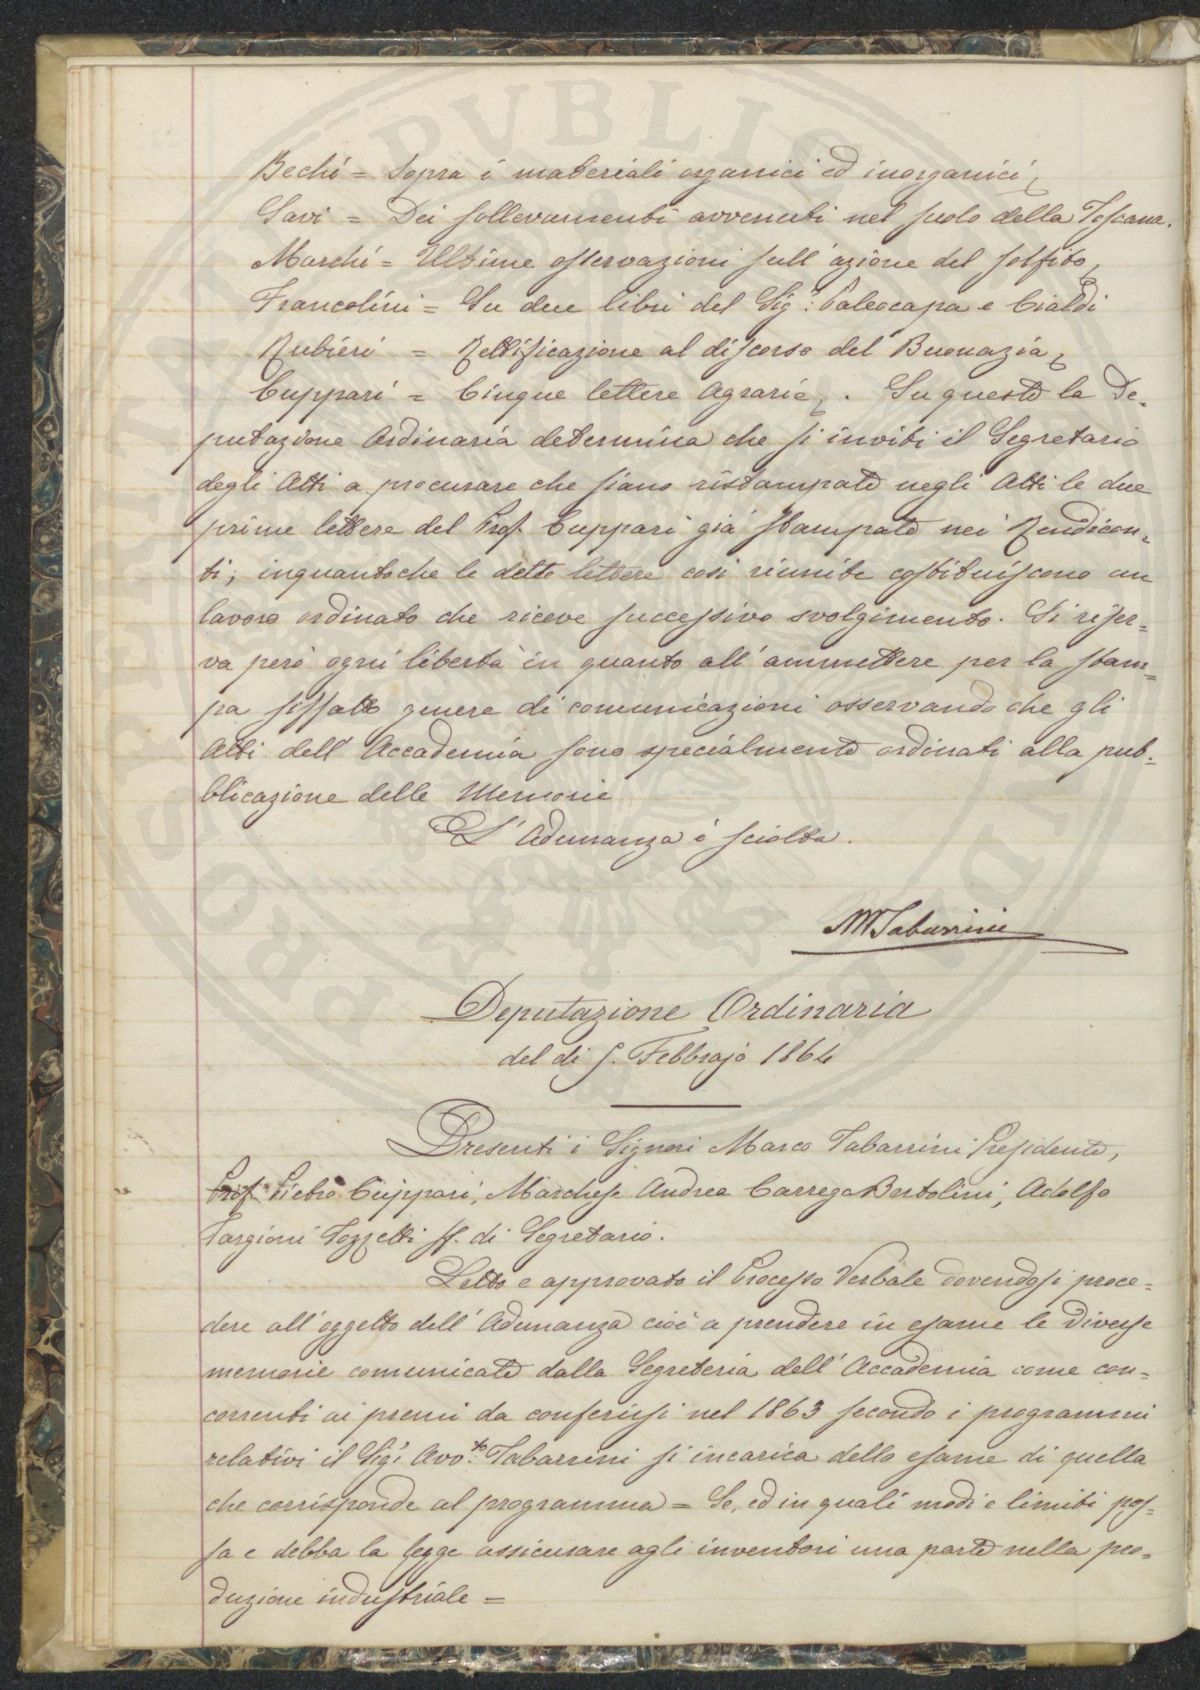 Bechi = Sopra i materiali organici ed inorganici
Savi = Dei sollevamenti avvenuti nel suolo della Toscana.
Marchi = Ultime osservazioni sull'azione del solfito
Francolini = Su due libri del Sig: Paleocapa e Cialdi
Rubieri = Rettificazione al discorso del Buonazia
Cuppari = Cinque lettere Agrarie. Su queste la De-
putazione Ordinaria determina che si inviti il Segretario
degli Atti a procurare che siano ristampate negli Atti le due
prime lettere del Prof. Cuppari già stampate nei Rendicon-
ti; inquantoche le dette lettere così riunite costituiscono un
lavoro ordinato che riceve successivo svolgimento. Si riser-
va però ogni libertà in quanto all'ammettere per la stam-
pa siffatto genere di comunicazioni osservando che gli
Atti dell'Accademia sono specialmente ordinati alla pub-
blicazione delle Memorie
L'Adunanza è sciolta.
M Tabarrini
Deputazione Ordinaria
del dì 5. Febbrajo 1864
Presenti i Signori Marco Tabarrini Presidente,
Prof. Pietro Cuppari, Marchese Andrea Carrega Bertolini, Adolfo
Targioni Tozzetti ff. di Segretario.
Letto e approvato il Processo Verbale dovendosi proce-
dere all'oggetto dell'Adunanza cioè a prendere in esame le diverse
memorie comunicate dalla Segreteria dell'Accademia come con-
correnti ai premi da conferirsi nel 1863 secondo i programmi
relativi il Sig: Avv.to Tabarrini si incarica dello esame di quella
che corrisponde al programma = Se, ed in quali modi e limiti pos-
sa e debba la legge assicurare agli inventori una parte nella pro-
duzione industriale =